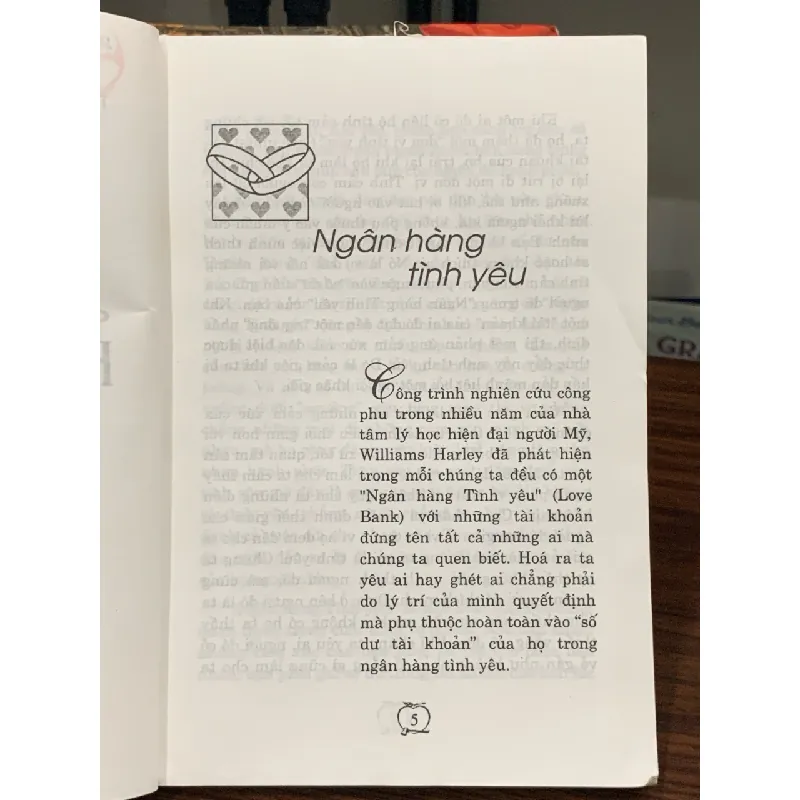 Ngân hàng
tình yêu
Công trình nghiên cứu công
phu trong nhiều năm của nhà
tâm lý học hiện đại người Mỹ,
Williams Harley đã phát hiện
trong mỗi chúng ta đều có một
"Ngân hàng Tình yêu" (Love
Bank) với những tài khoản
đứng tên tất cả những ai mà
chúng ta quen biết. Hoá ra ta
yêu ai hay ghét ai chẳng phải
do lý trí của mình quyết định
mà phụ thuộc hoàn toàn vào “số
dư tài khoản” của họ trong
ngân hàng tình yêu.
5
GRA